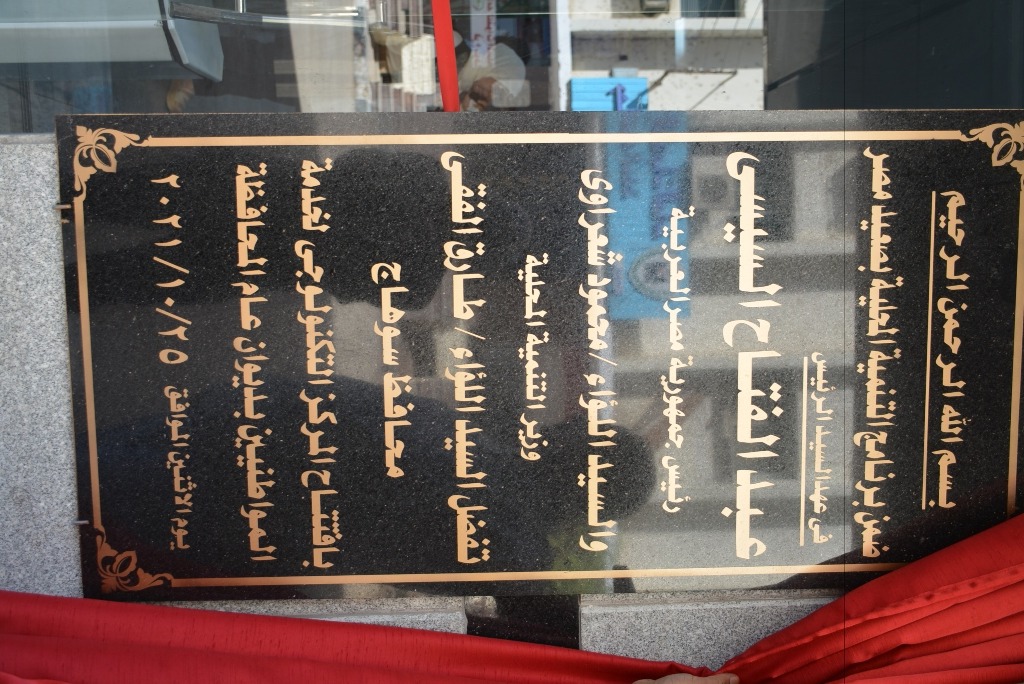 بسم الله الرحمن الرحيم
ضمن برنامج التنمية المحلية بصعيد مصر
فى عهد السيد الرئيس
عبد الفتاح السيسى
رئيس جمهورية مصر العربية
والسيد اللواء / محمود شعراوى
وزير التنمية المحلية
تفضل السيد اللواء / طارق الفقى
محافظ سوهاج
بافتتاح المركز التكنولوجى لخدمة
المواطنين بديوان عام المحافظة
يوم الاثنين الموافق ٢٠٢١/١٠/٢٥